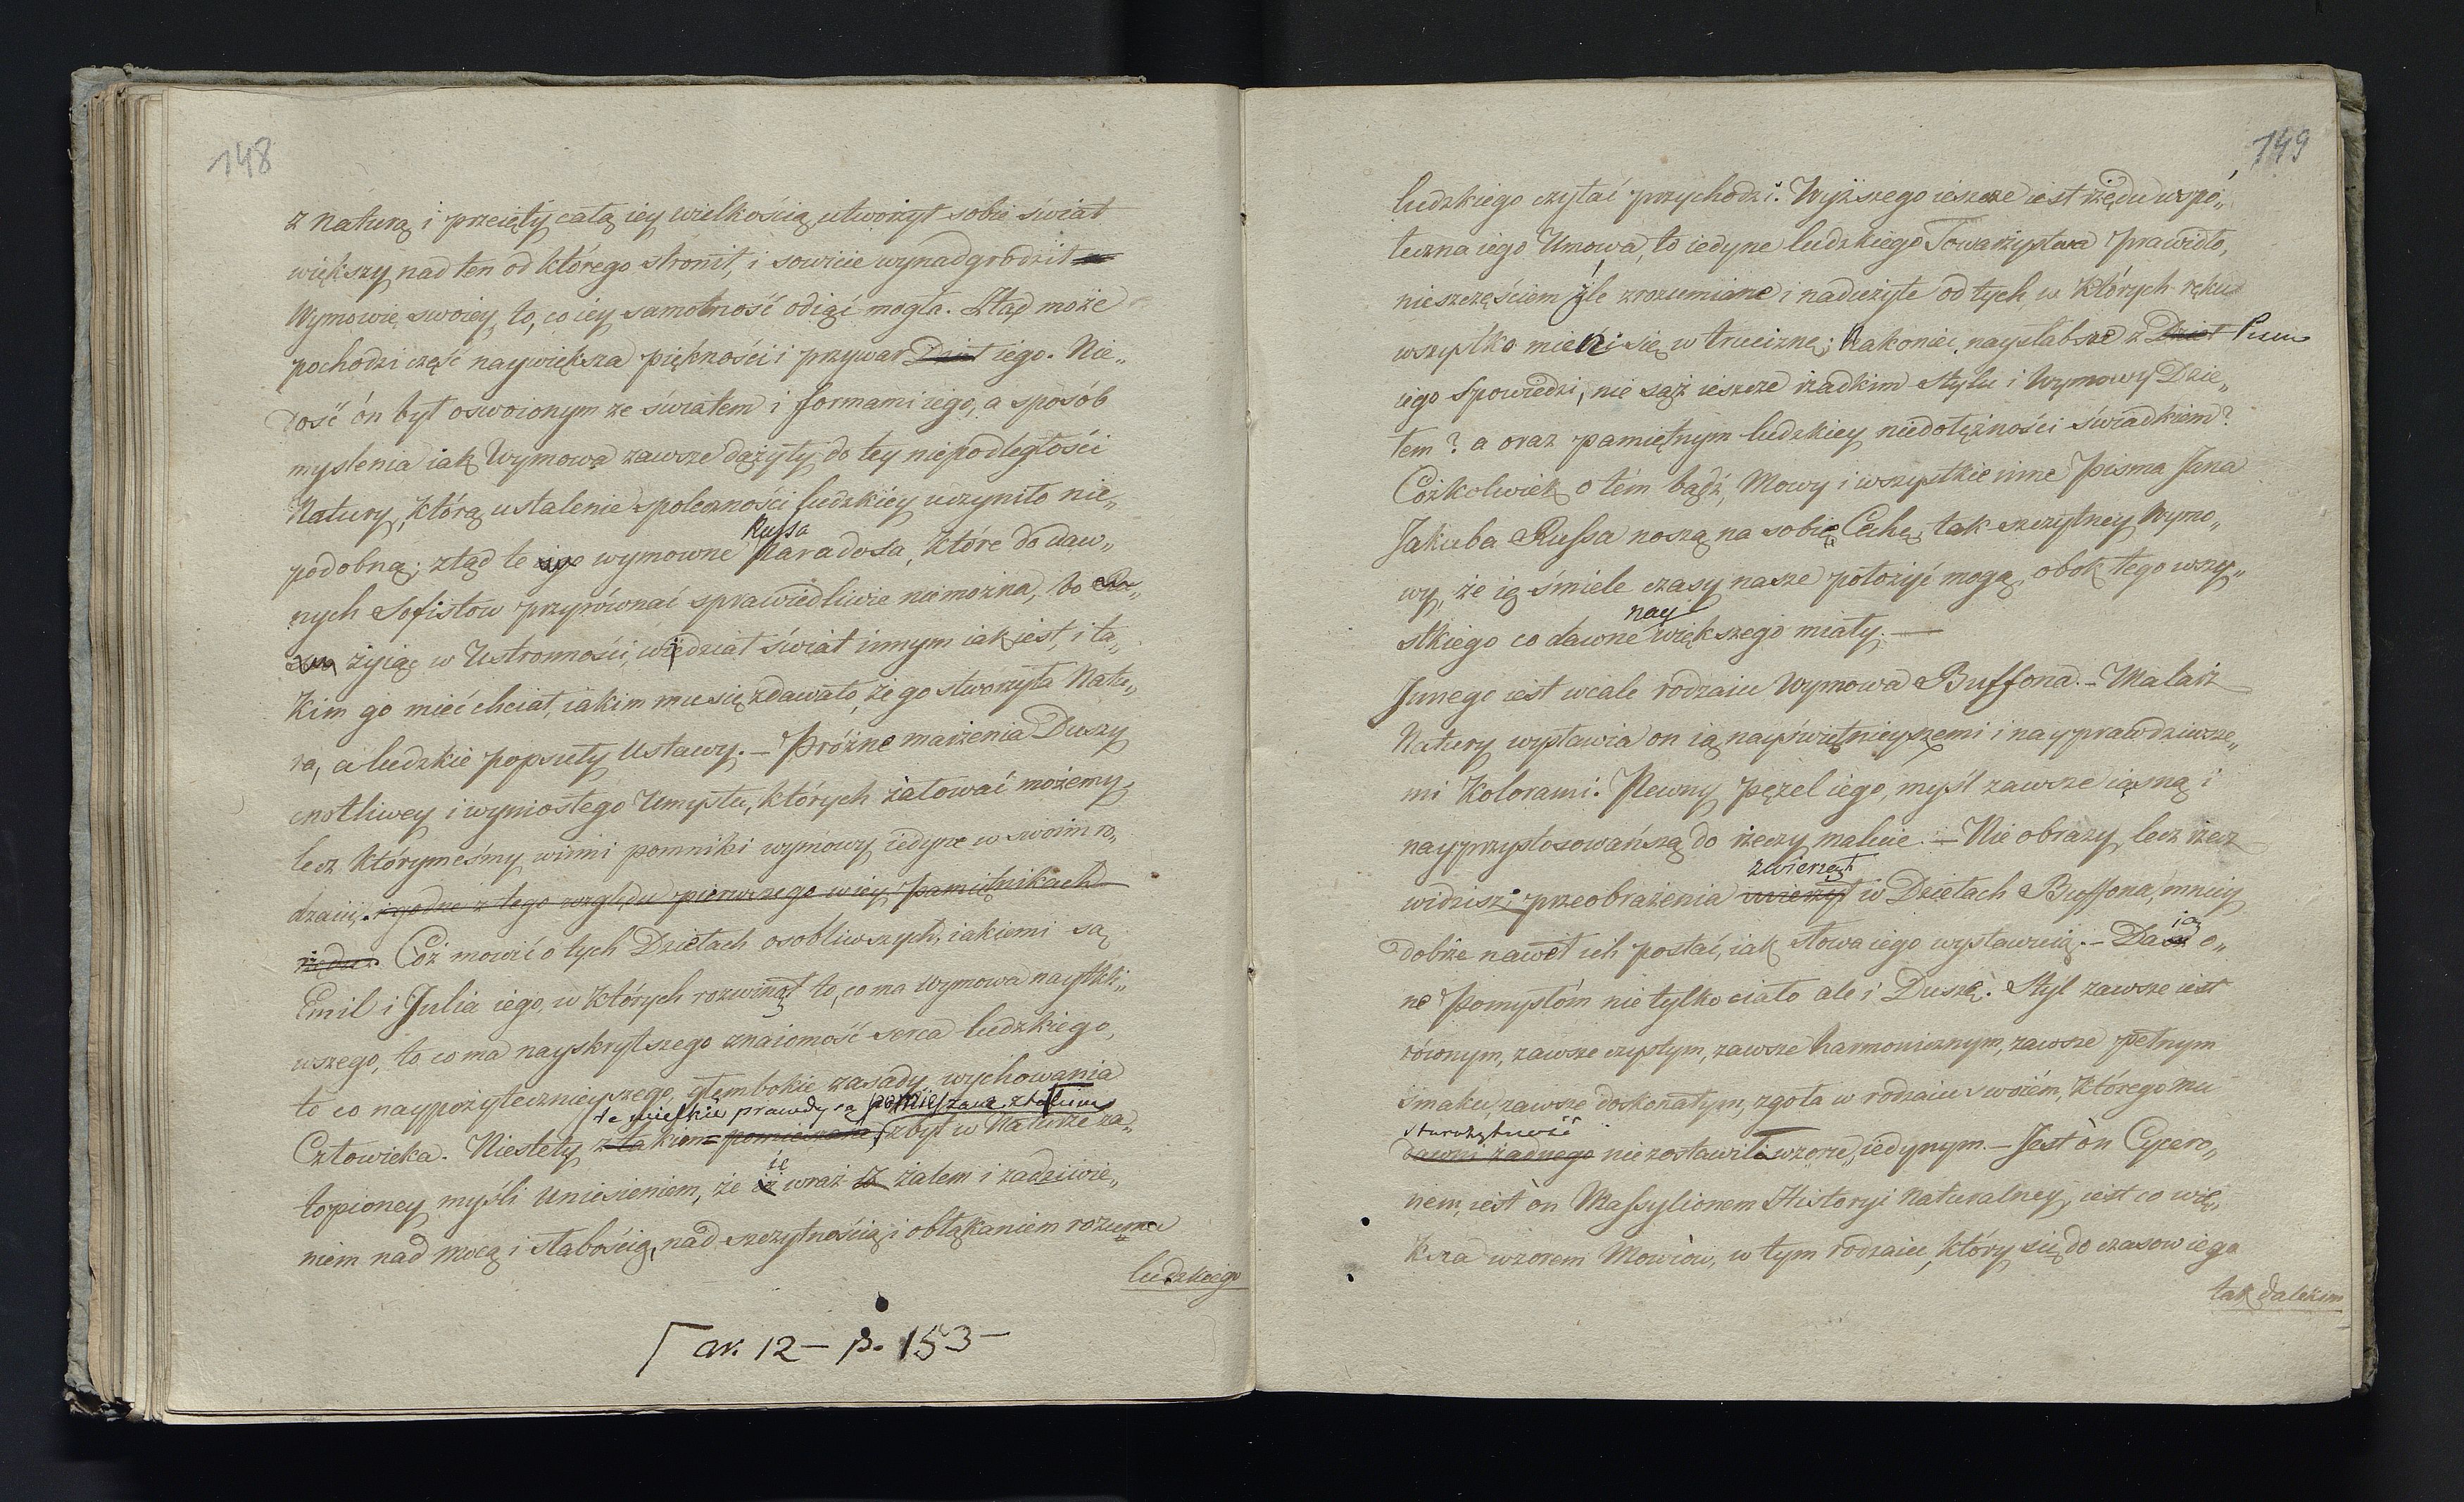 148
z naturą i przeięty całą iey wielkością, utworzył sobie świat
większy nad ten od którego stronił, i sowicie wynadgrodził
Wymowie swoiey, to, co iey samotność odiąć mogła. Ztąd może
pochodzi część naywiększa piękności i przywar Dzieł iego. Nie„
dość ón był oswoionym ze światem i formami iego, a sposób
myslenia iak Wymowa zawsze dążyły do tey niepodległości
Natury, którą ustalenie społeczności ludzkiéy uczyniło nie„
Russa
podobną; ztąd te iego wymowne Paradosa, które do daw„
nych Sofistow przyrównać sprawiedliwie nie można, bo
żyiąc w Ustronności, widział świat innym iak iest, i ta„
Kim go mieć chciał, iakim mu się zdawało, że go stworzyła Natu„
ra, a ludzkie popsuły Ustawy. – Próżne marzenia Duszy
cnotliwey i wyniosłego Umysłu, których żałować możemy,
lecz którymeśmy winni pomniki wymowy iedyne w swoim ro„
dzaiu, i godne z tego względu pierwszego w iey pamiętnikach
rzędu. Cóż mowić o tych Dziełach osobliwszych, iakiemi są
Emil i Julia iego, w których rozwinął to, co ma wymowa naytkli„
wszego, to co ma nayskrytszego znaiomość serca ludzkiego,
to co naypożytecznieyszego, głembokie zasady wychowania
te wielkie prawdy są pomieszane z takim
Człowieka. Niestety z takim pomieszane zbyt w Naturze za„
ie
topioney myśli Uniesieniem, że wraz z żalem i zadziwie„
niem nad mocą i słabością, nad szczytnością i obłąkaniem rozumu
ludzkiego
ar. 12 – p. 153 –
149
ludzkiego czytać przychodzi. Wyższego ieszcze iest rzędu wspó„
łeczna iego Umowa, to iedyne ludzkiego Towarzystwa prawidło,
nieszczęściem źle zrozumiane i nadużyte od tych, w których ręku
wszystko mieni się w truciznę; Nakoniec naysłabsze z Dzieł Pism
iego Spowiedzi, nie sąż ieszcze rzadkim Stylu i Wymowy Dzie„
łem? a oraz pamiętnym ludzkiey niedołężności świadkiem?
Cóżkolwiek o tém bądź, Mowy i wszystkie inne Pisma Jana
Jakuba Russa noszą na sobie Cechę, tak szczytney Wymo„
wy, że ią śmiele czasy nasze położyć mogą, obok tego wszy„
nay
stkiego co dawne większego miały. —
Innego iest wcale rodzaiu Wymowa Buffona. – Malarz
Natury wystawia on ią nayświetnieyszemi i nayprawdziwsze„
mi Kolorami. Pewny pęzel iego, myśl zawsze iasną i
nayprzystosowańszą do rzeczy maluie. – Nie obrazy, lecz rzecz
zwierząt
widzisz; przeobrażenia zwierząt w Dziełach Buffona, mniey
dobrze nawet ich postać, iak słowa iego wystawuią. – Daią o„
ne Pomysłóm nie tylko ciało ale i Duszę. Styl zawsze iest
równym, zawsze czystym, zawsze harmonicznym, zawsze pełnym
smaku, zawsze doskonałym, zgoła w rodzaiu swoiém, którego mu
starożytność
dawni żadnego nie zostawiła wzoru, iedynym. – Jest ón Cycero„
nem, iest ón Massylionem Historyi Naturalney, iest co wię„
ksza wzorem Mowców, w tym rodzaiu, który się do czasow iego
tak dalekim